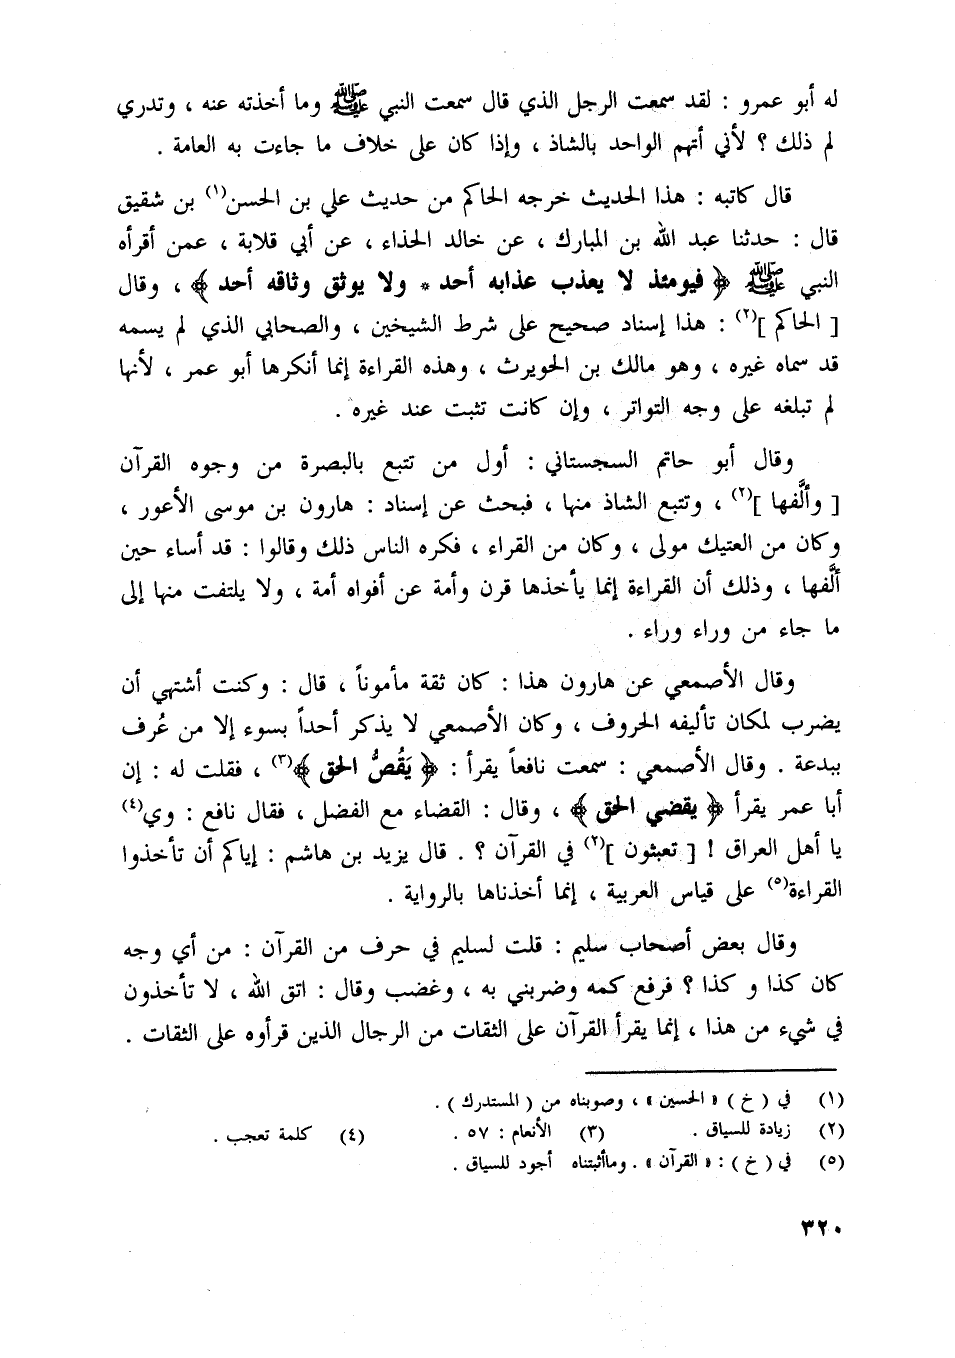 له أبو عمرو : لقد سمعت الرجل الذي قال سمعت النبي ﷺ وما أخذته عنه ، وتدري
لم ذلك ؟ لأني أتهم الواحد بالشاذ ، وإذا كان على خلاف ما جاءت به العامة .
قال كاتبه : هذا الحديث خرجه الحاكم من حديث علي بن الحسن(١) بن شقيق
قال : حدثنا عبد الله بن المبارك ، عن خالد الحذاء ، عن أبي قلابة ، عمن أقرأه
النبي ﷺ ﴿ فيومئذ لا يعذب عذابه أحد * ولا يوثق وثاقه أحد ﴾ ، وقال
[ الحاكم ](٢) : هذا إسناد صحيح على شرط الشيخين ، والصحابي الذي لم يسمه
قد سماه غيره ، وهو مالك بن الحويرث ، وهذه القراءة إنما أنكرها أبو عمر ، لأنها
لم تبلغه على وجه التواتر ، وإن كانت تثبت عند غيره .
وقال أبو حاتم السجستاني : أول من تتبع بالبصرة من وجوه القرآن
[ وألَّفها ](٢) ، وتتبع الشاذ منها ، فبحث عن إسناد : هارون بن موسى الأعور ،
وكان من العتيك مولى ، وكان من القراء ، فكره الناس ذلك وقالوا : قد أساء حين
ألَّفها ، وذلك أن القراءة إنما يأخذها قرن وأمة عن أفواه أمة ، ولا يلتفت منها إلى
ما جاء من وراء وراء .
وقال الأصمعي عن هارون هذا : كان ثقة مأموناً ، قال : وكنت أشتهي أن
يضرب لمكان تأليفه الحروف ، وكان الأصمعي لا يذكر أحداً بسوء إلا من عُرف
ببدعة . وقال الأصمعي : سمعت نافعاً يقرأ : ﴿ يَقُصُّ الحق ﴾(٣) ، فقلت له : إن
أبا عمر يقرأ ﴿ يقضي الحق ﴾ ، وقال : القضاء مع الفضل ، فقال نافع : وي(٤)
يا أهل العراق ! [ تعبثون ](٢) في القرآن ؟ . قال يزيد بن هاشم : إياكم أن تأخذوا
القراءة(٥) على قياس العربية ، إنما أخذناها بالرواية .
وقال بعض أصحاب سليم : قلت لسليم في حرف من القرآن : من أي وجه
كان كذا و كذا ؟ فرفع كمه وضربني به ، وغضب وقال : اتق الله ، لا تأخذون
في شيء من هذا ، إنما يقرأ القرآن على الثقات من الرجال الذين قرأوه على الثقات .
(١) في ( خ ) « الحسين » ، وصوبناه من ( المستدرك ) .
(٢) زيادة للسياق . (٣) الأنعام : ٥٧ . (٤) كلمة تعجب .
(٥) في ( خ ) : « القرآن » . وماأثبتناه أجود للسياق .
٣٢٠